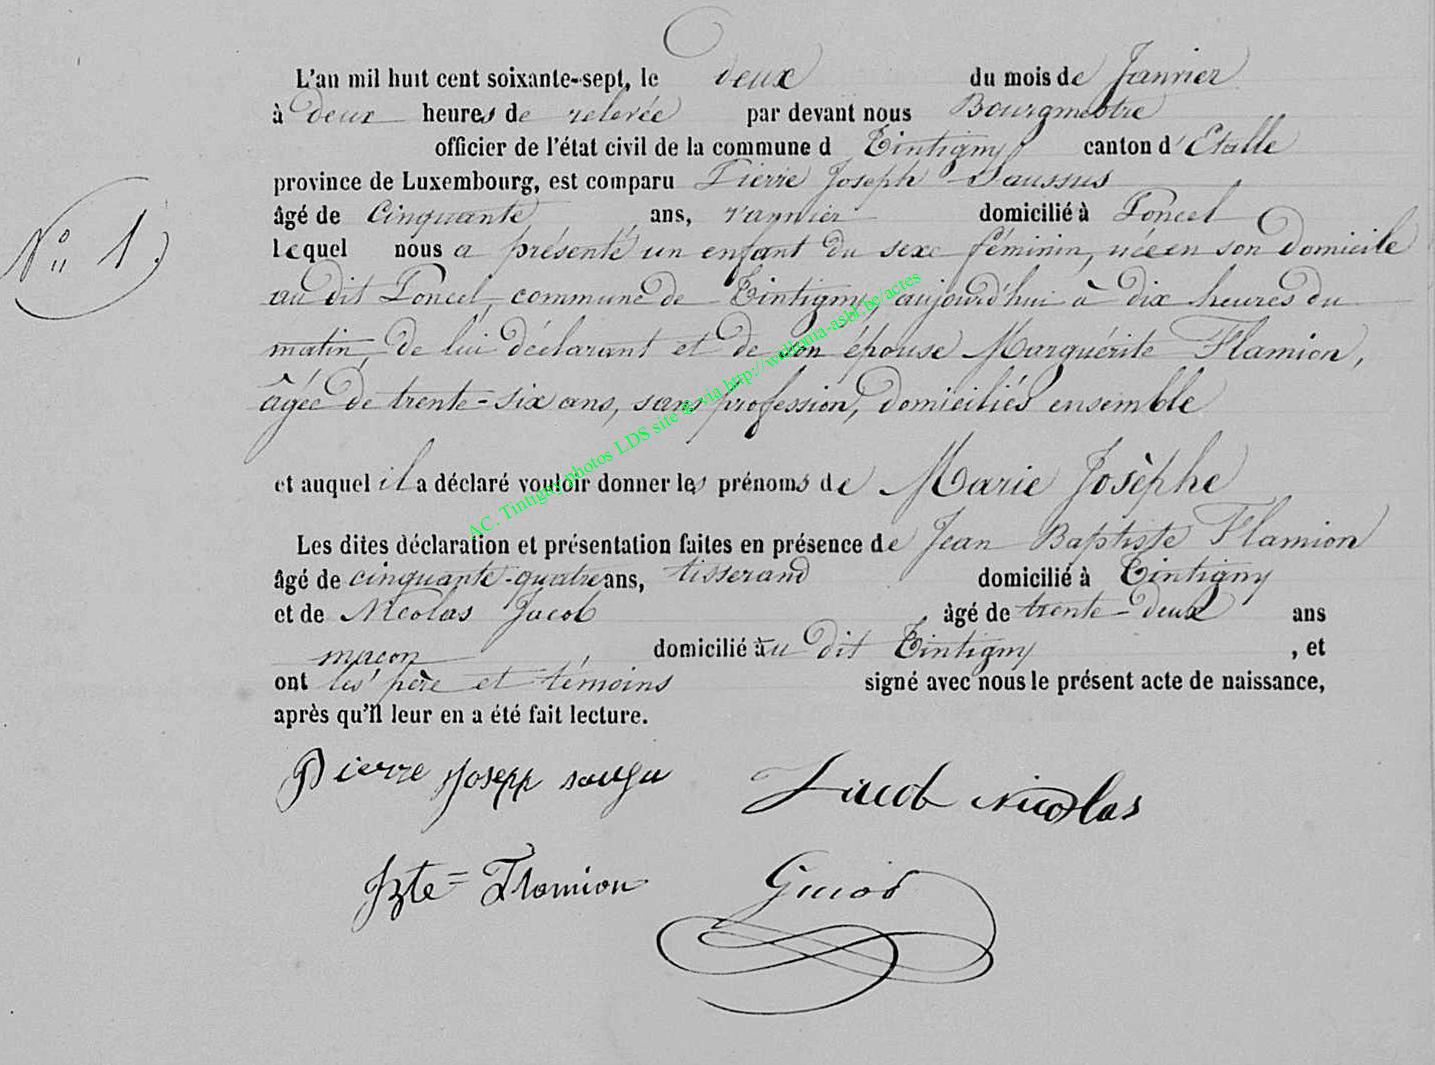 L'an mil huit cent soixante-sept, le deux du mois de Janvier
à deux heures de relevée par devant nous Bourgmestre
officier de l'état civil de la commune d Tintigny canton d'Etalle
province de Luxembourg, est comparu Pierre Joseph Saussus
âgé de Cinquante ans, vannier domicilié à Poncel
N° 1.
lequel nous a présenté un enfant du sexe féminin, née en son domicile
au dit Poncel, commune de Tintigny, aujourd'hui à dix heures du
matin, de lui déclarant et de son épouse Marguérite Flamion,
âgée de trente-six ans, sans profession, domiciliés ensemble
et auquel il a déclaré vouloir donner les prénoms de Marie Josèphe
Les dites déclaration et présentation faites en présence de Jean Baptiste Flamion
âgé de cinquante-quatre ans, tisserand domicilié à Tintigny
et de Nicolas Jacob âgé de trente-deux ans
maçon domicilié au dit Tintigny, et
ont les père et témoins signé avec nous le présent acte de naissance,
après qu'il leur en a été fait lecture.
Pierre Josepp
Jacob Nicolas
Jbte= Flamion
AC. Tintigny photos LDS site & via http://wallonia-asbl.be/actes